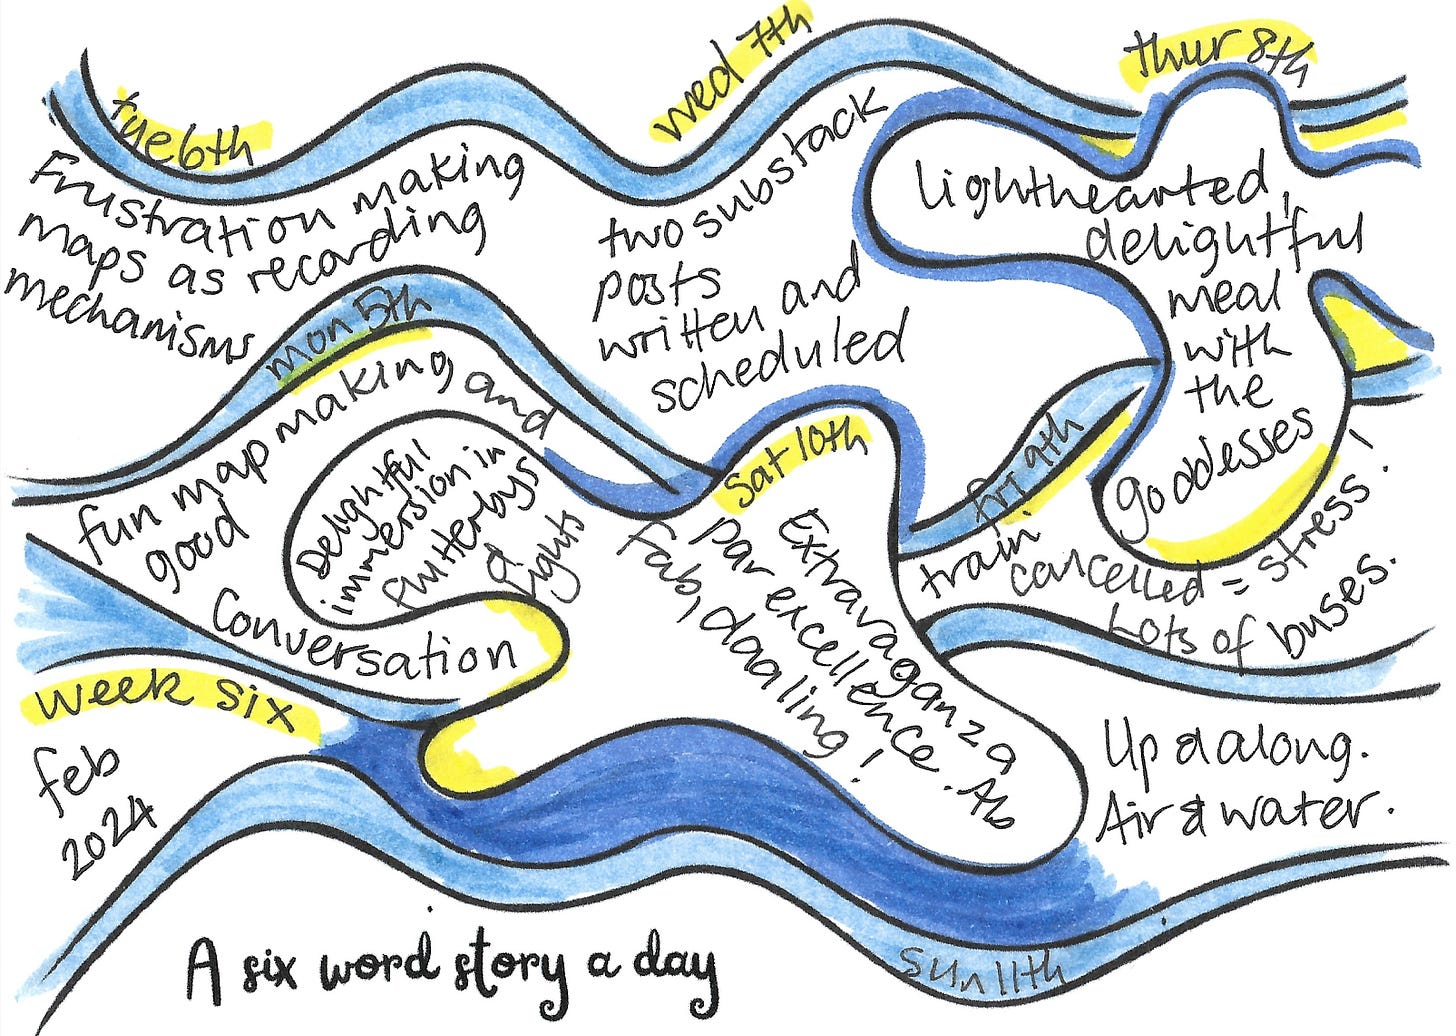 week six
feb
2024
mon 5th
fun map making and
good
Conversation
Delightful
immersion in
flutterbys
&
lights
tue 6th
Frustration making
maps as recording
mechanisms
wed 7th
two substack
posts
written and
scheduled
thur 8th
Lighthearted,
delightful
meal
with
the
goddesses
fri 9th
train
cancelled = stress!
Lots of buses.
sat 10th
Extravaganza
par excellence. Ab
Fab, daaling!
Sun 11th
Up & along.
Air & water.
A six word story a day